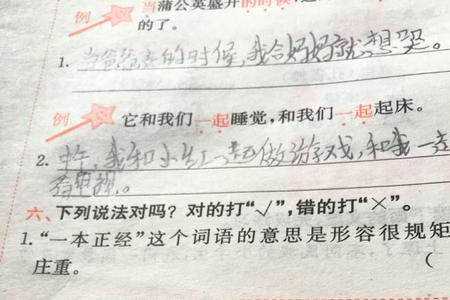 当蒲公英盛开的时候,
的了。
1. 当爸爸走的时候，我合妈妈就想哭。
例 它和我们一起睡觉，和我们一起起床。
2. 中午，我和小红一起做游戏，和我一起
六、下列说法对吗？对的打“√”，错的打“×”。
1.“一本正经”这个词语的意思是形容很规矩
庄重。 (